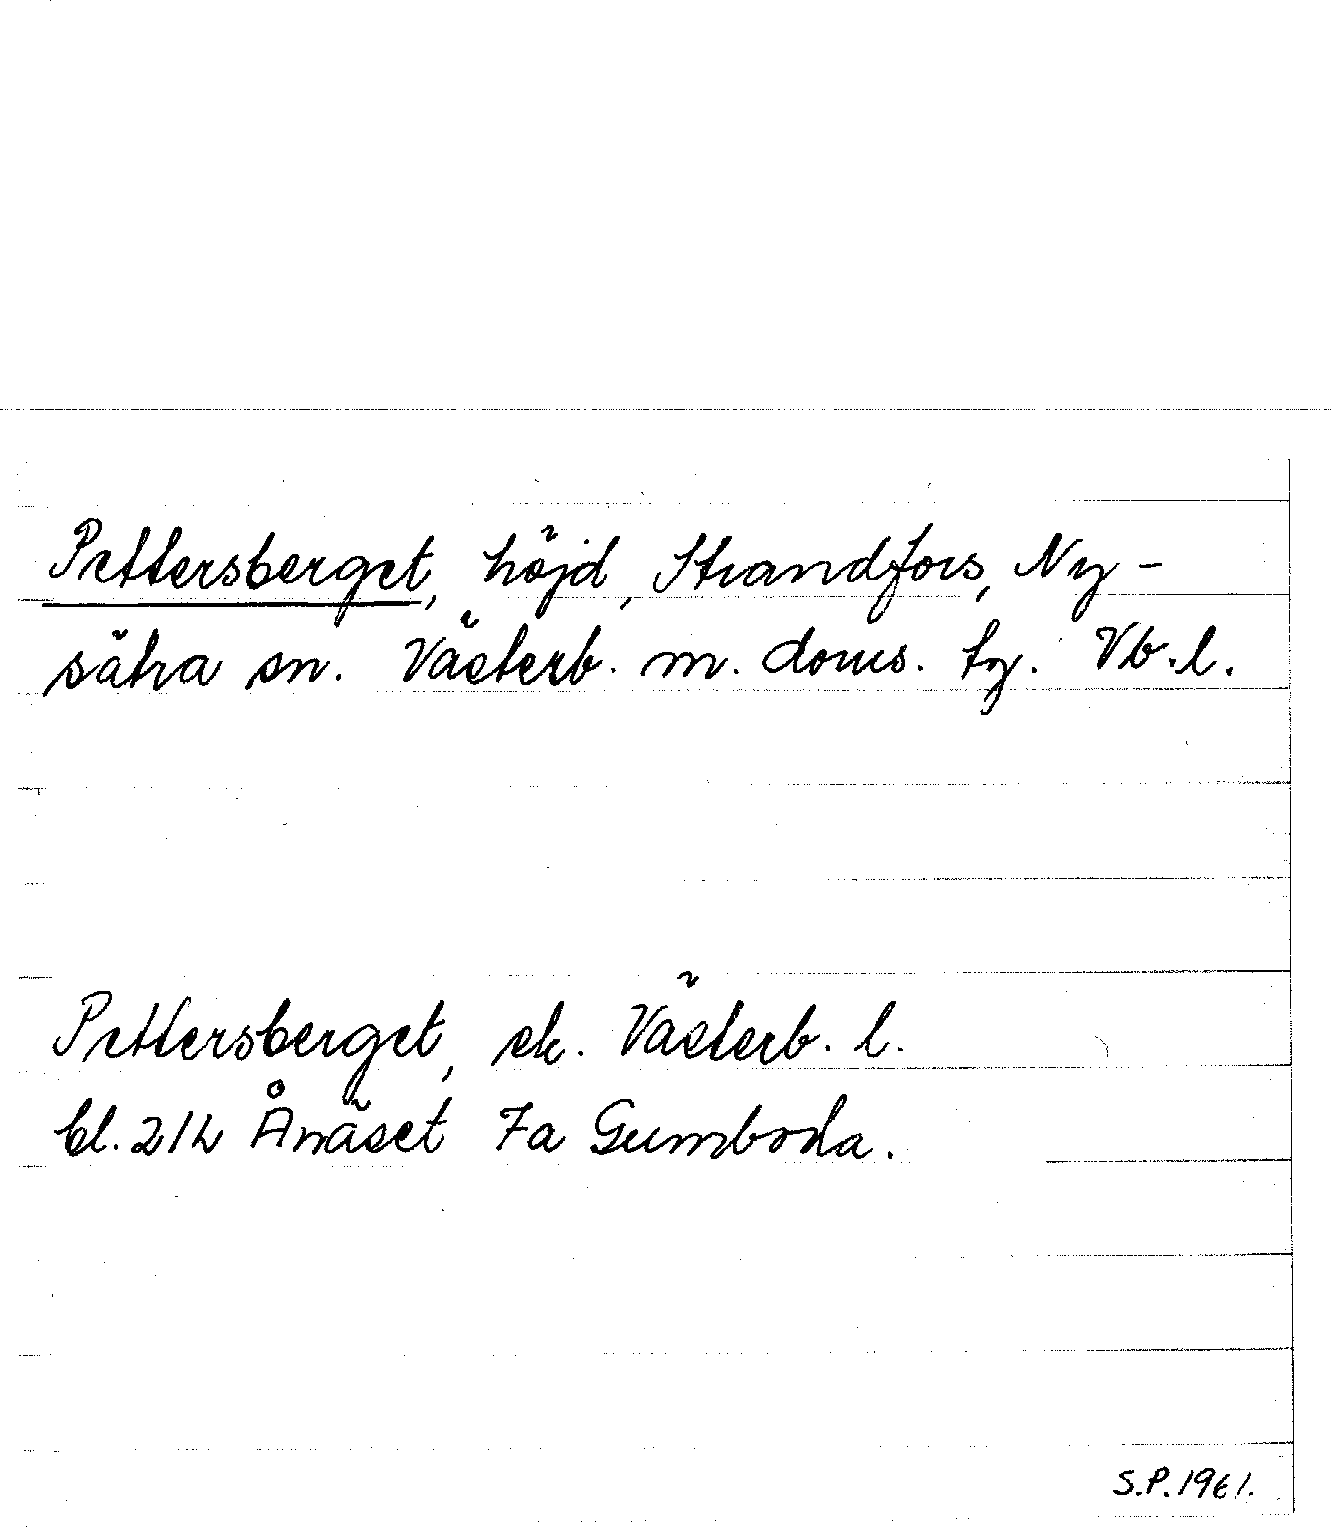 Pettersberget, höjd, Strandfors, Ny-
sätra sn. Västerb. m. doms. tg. Vb.l.
Pettersberget, ek. Västerb. l.
bl. 21L Ånäset 7a Gumboda.
S.P. 1961.